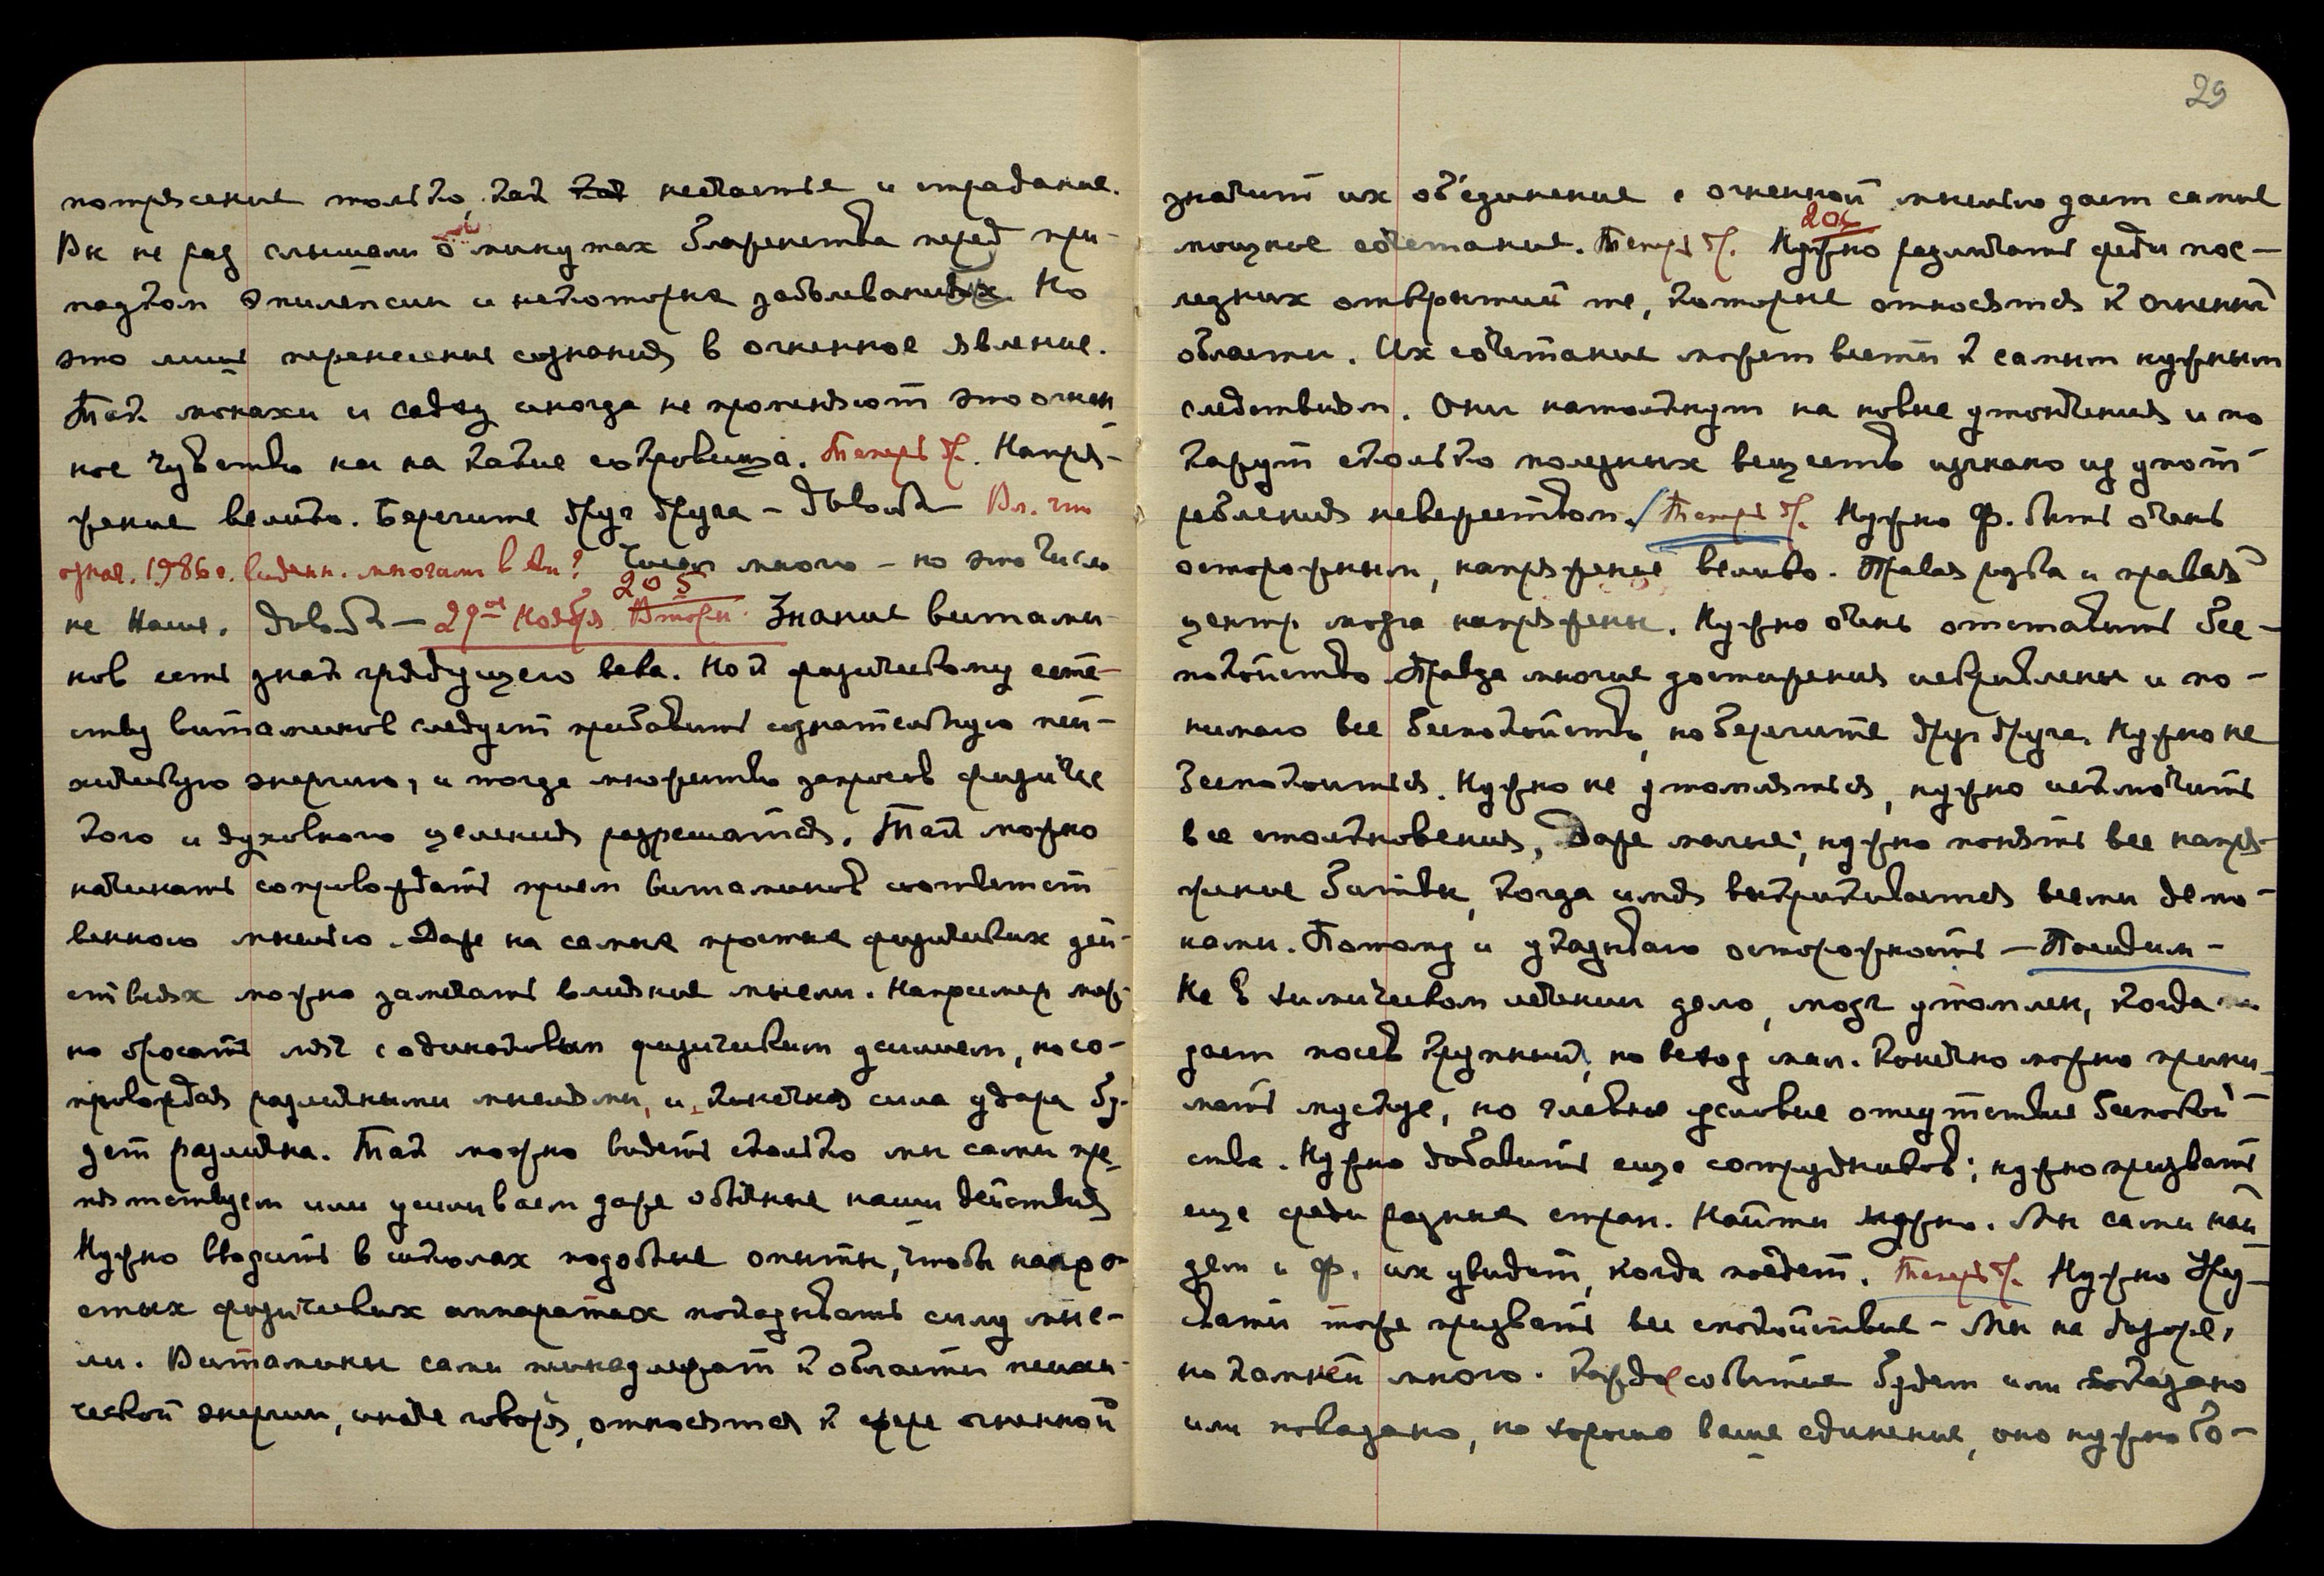 потрясение только, как как несчастье и страдание.
Вы не раз слышали о минутах блаженства перед при-
падком эпилепсии и некоторых заболеваниях. Но
это лишь перенесение сознания в огненное явление.
Так монахи и садху иногда не променяют это огнен
ное чувство ни на какие сокровища. Теперь др. Напря-
жение велико. Берегите друг друга – довольно – Вл. что
означ. 1986 г. виденн. многими в Ам? Чисел много – но это число
не Наше. довольно – 29ое Ноябр. Вторн.
205
Знание витами-
нов есть знак грядущего века. Но к физическому есте-
ству витаминов следует прибавить сознательную пси-
хическую энергию, и тогда множество запросов физиче
кого и духовного целения разрешатся. Так можно
начинать сопровождать прием витаминов соответст
венною мыслью. Даже на самых простых физических дей-
ствиях можно замечать влияние мысли. Например мож-
но бросать мяч с одинаковым физическим усилием, но со-
провождая различными мыслями, и, конечно, сила удара бу-
дет различна. Так можно видеть сколько мы сами пре-
пятствуем или усиливаем даже обычные наши действия
Нужно вводить в школах подобные опыты, чтобы на про-
стых физических аппаратах показывать силу мыс-
ли. Витамины сами принадлежат к области психи-
ческой энергии, иначе говоря, относятся к сфере огненной
29
значит их объединение с огненной мыслью дает самые
мощное сочетание. Теперь др.
206
Нужно различать среди пос-
ледних открытий те, которые относятся к огненной
области. Их сочетание может вести к самым нужным
следствиям. Они натолкнут на новые утончения и по
кажут сколько полезных веществ изгнано из упот-
ребления невежеством. Теперь др. Нужно Ф. быть очень
осторожным, напряжение велико. Правая рука и правый
центр мозга напряжены. Нужно очень отставить бес-
покойство. Правда многие достижения искривлены и по-
нимаю все беспокойство, но берегите друг друга. Нужно не
беспокоиться. Нужно не утомляться, нужно исключить
все столкновения, даже малые; нужно понять все напря-
жение битвы, когда имя выкрикивается всеми демо-
нами. Потому и указываю осторожность – Посидим –
Не в химическом лечении дело, мозг утомлен, когда
дает посев крупный, но всход мал. Конечно можно прини-
мать мускус, но главное условие отсутствие беспокой-
ства. Нужно добавить еще сотрудников; нужно призвать
еще среди разных стран. Найти можно. Мы сами най
дем и Ф. их увидит, когда поедет. Теперь др. Нужно
также призвать все спокойствие – Мы на дозоре,
но камней много. Каждое событие будет или сказано
или показано, но хорошо ваше единение, оно нужно бо-